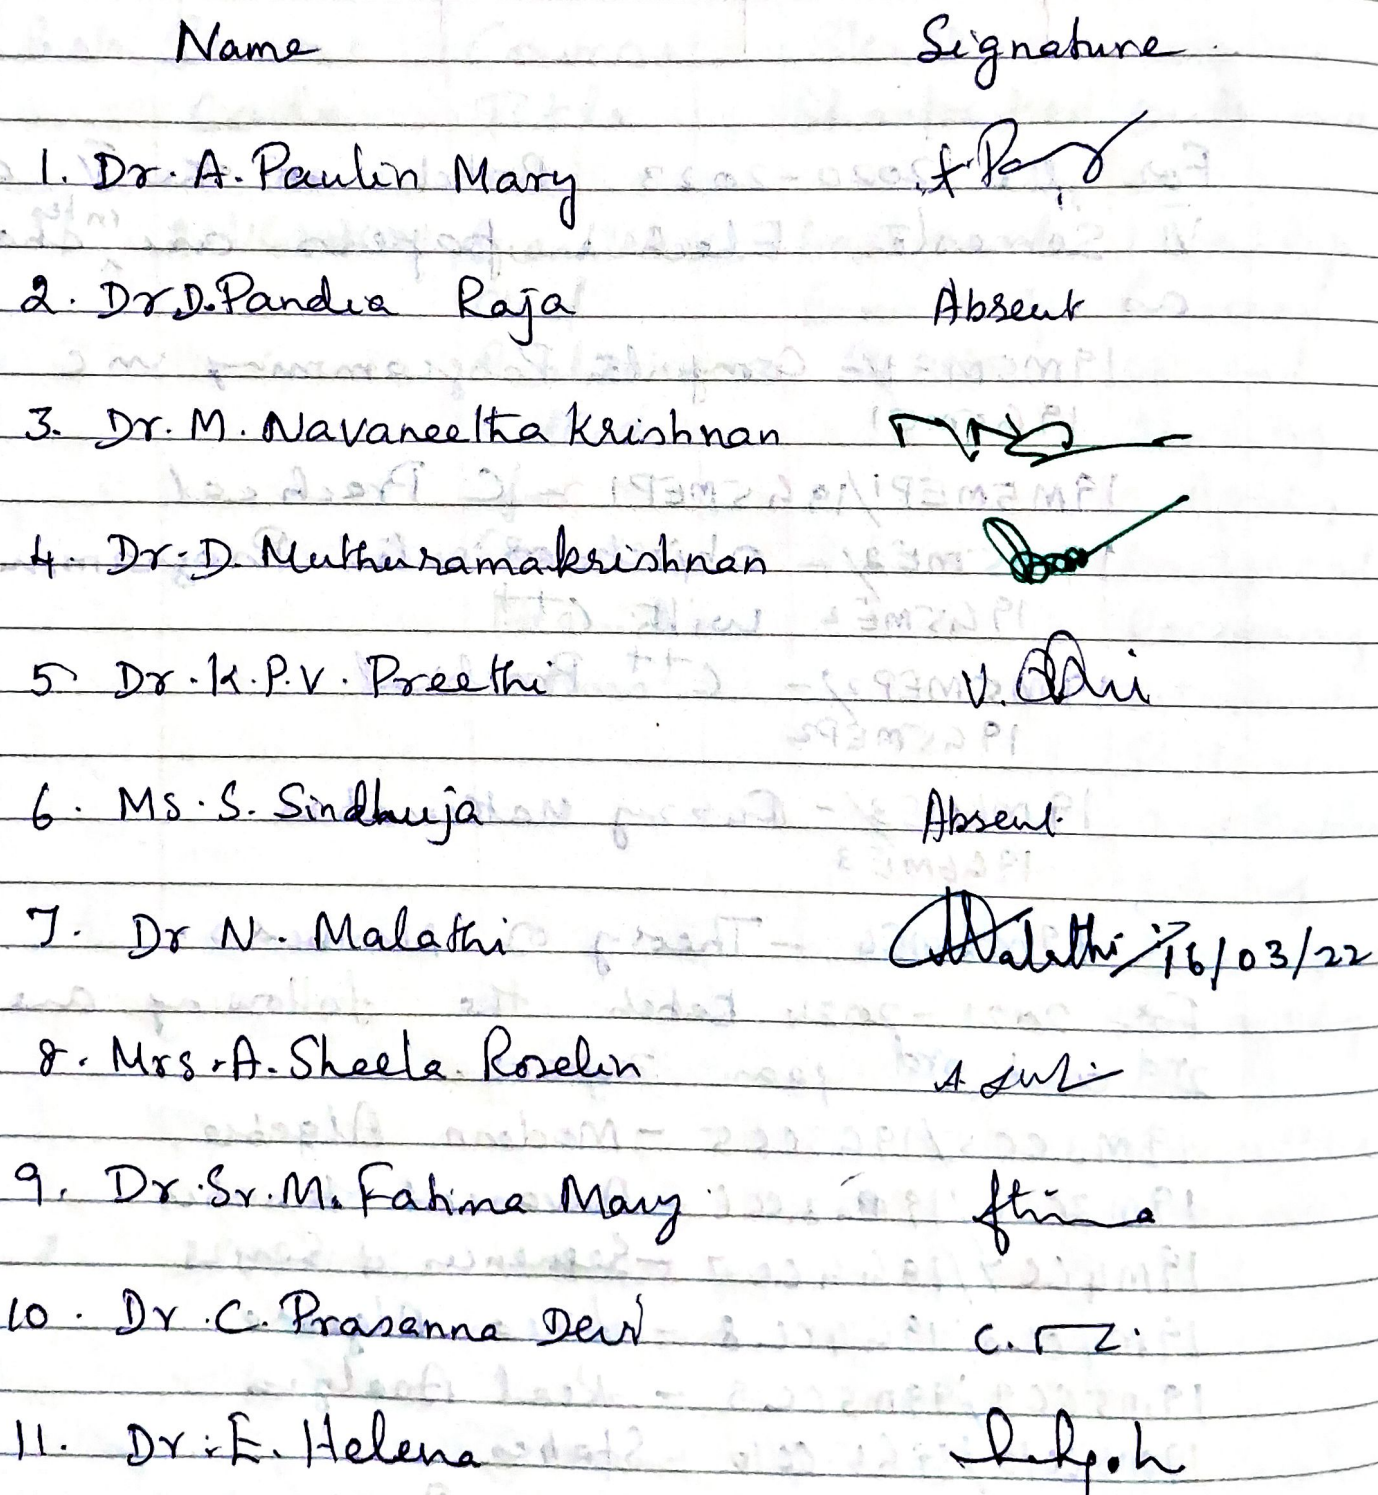 Name Signature
1. Dr. A. Paulin Mary
2. Dr D. Pandia Raja Absent
3. Dr. M. Navaneetha Krishnan
4. Dr. D. Muthuramakrishnan
5 Dr. K. P. V. Preethi
6. Ms. S. Sindhuja Absent.
7. Dr N. Malathi Malathi 16/03/22
8. Mrs. A. Sheela Roselin
9. Dr. Sr. M. Fatima Mary
10. Dr. C. Prasanna Devi
11. Dr. E. Helena